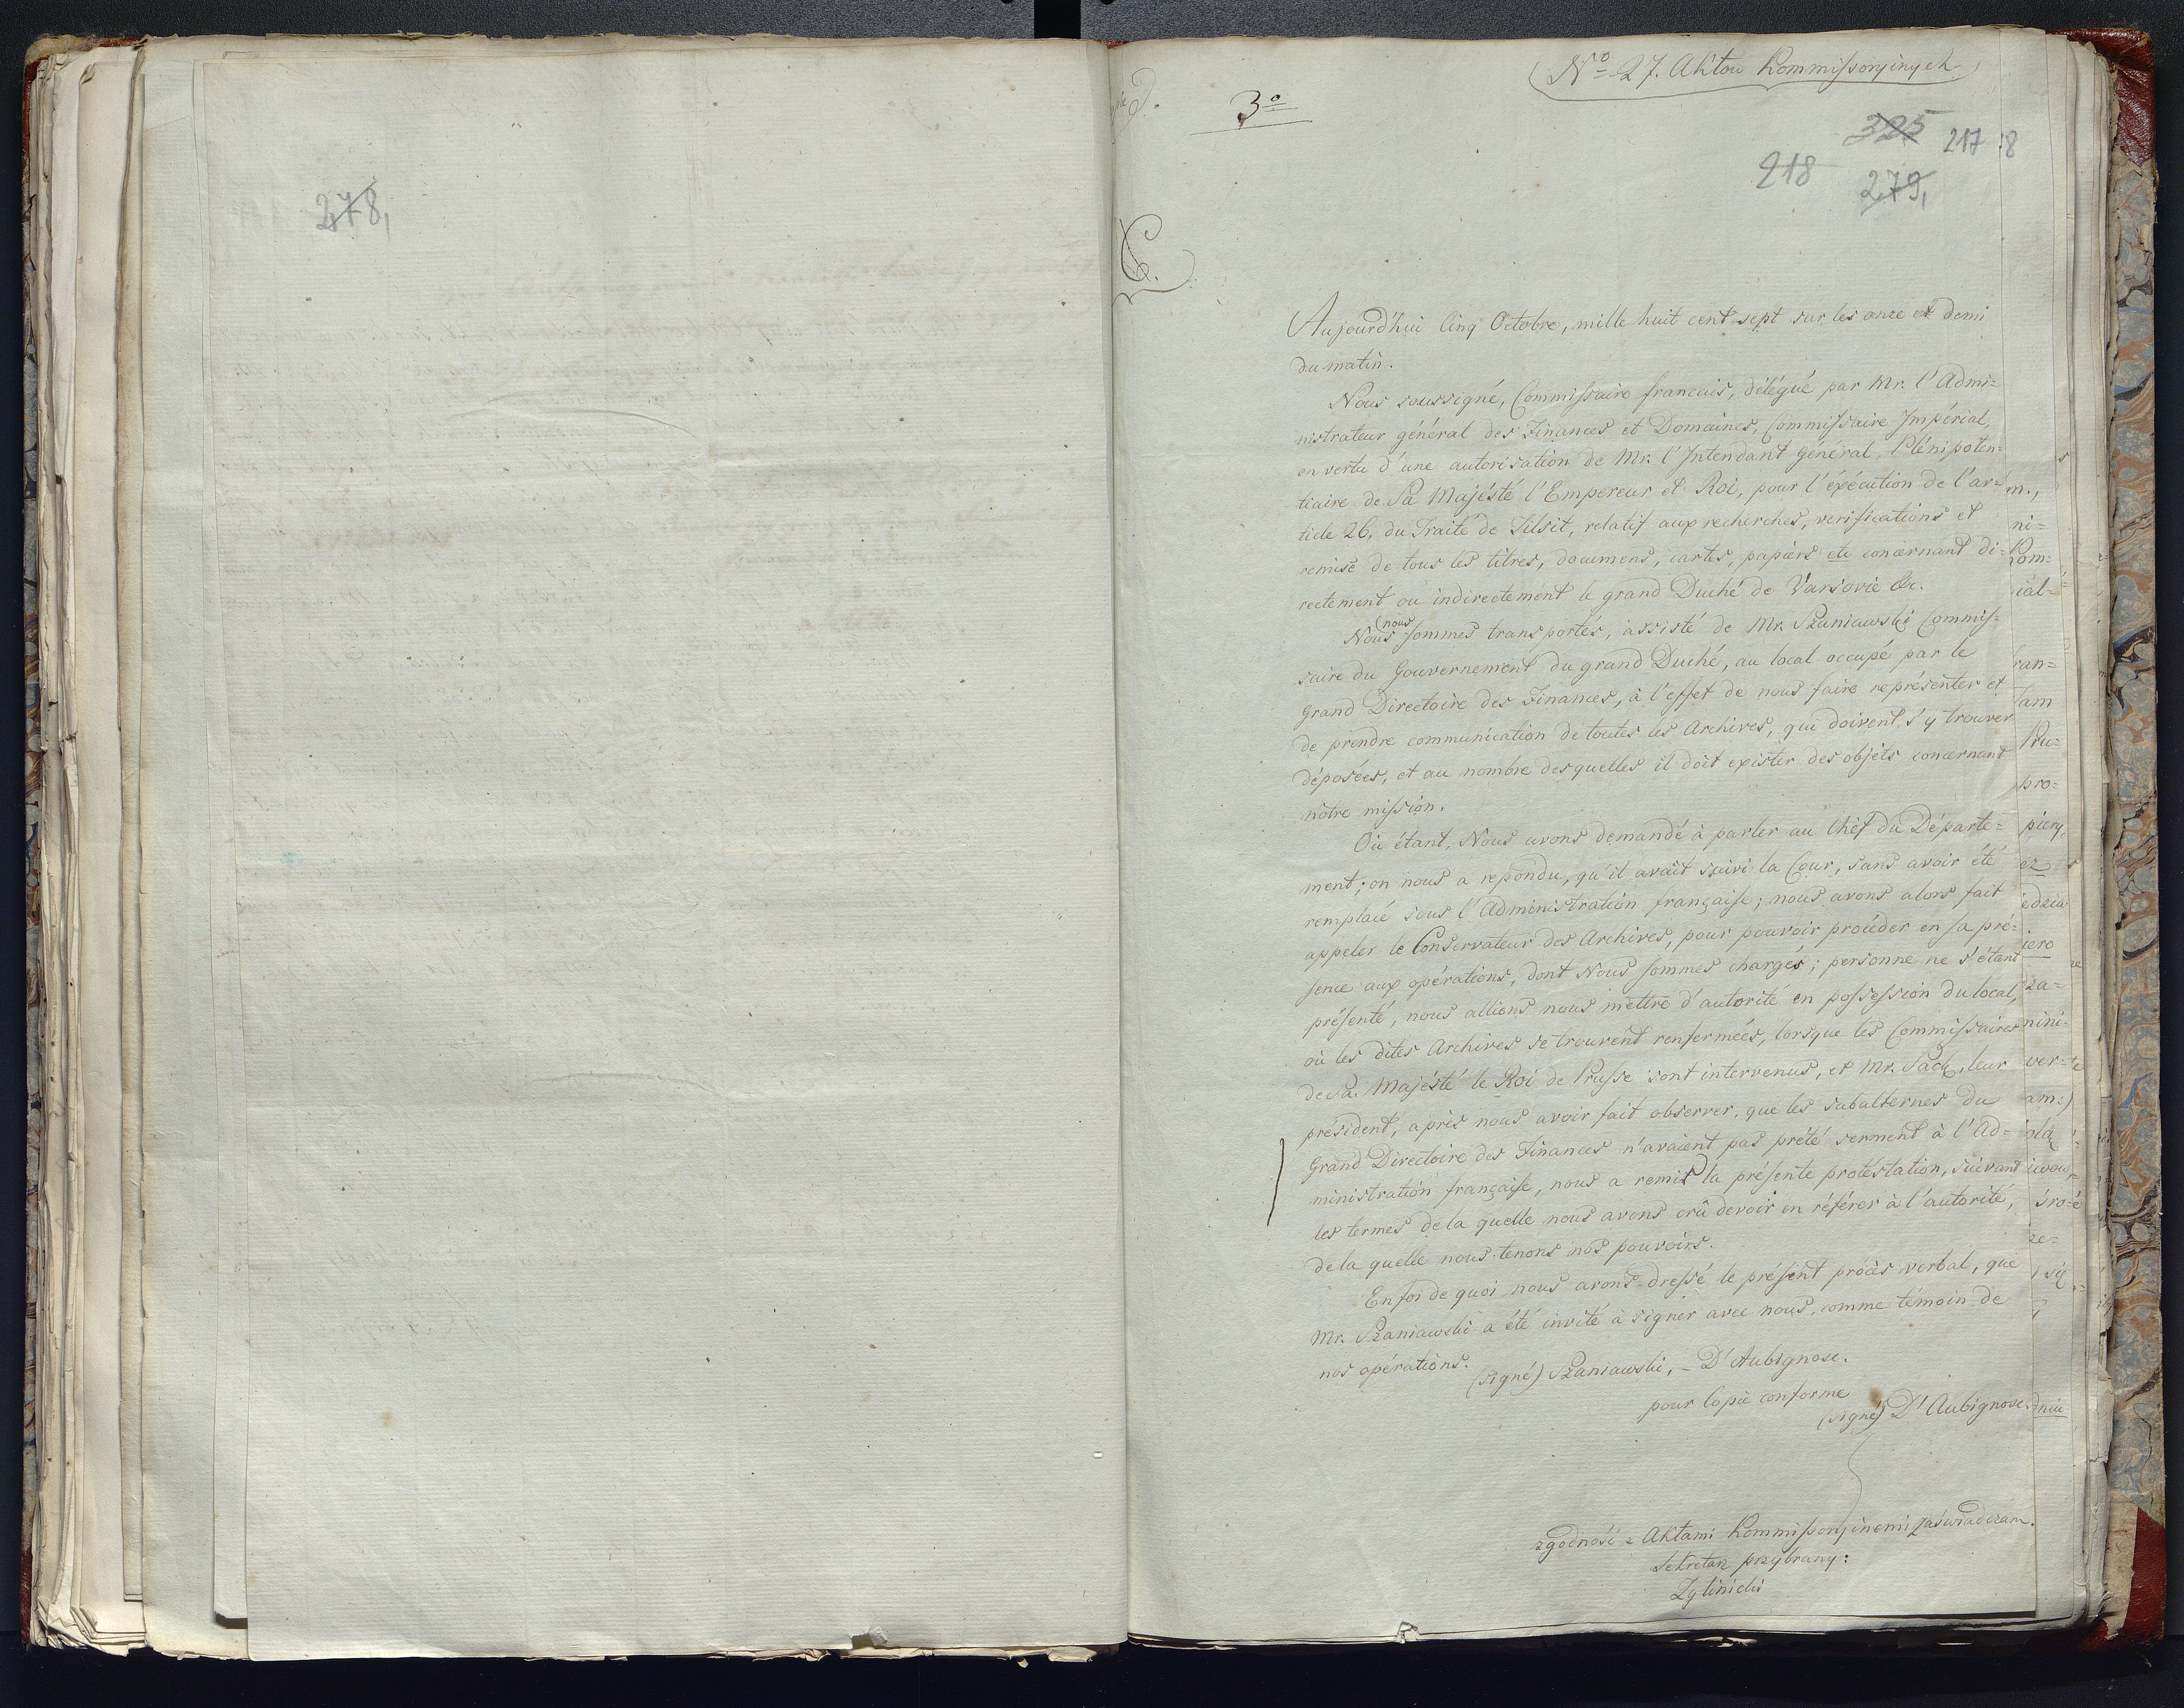 278,
No 27. Aktow Kommissoryinych
3o
325 217 18
218 279,
C.
Aujourd'hui Cinq Octobre, mille huit cent sept sur les onze et demi
du matin.
Nous soussigné, Commissaire francais, délégué par Mr. l'Admi=
nistrateur général des Finances et Domaines, Commissaire Impérial,
en vertu d'une autorisation de Mr. l'Intendant général, Plénipoten=
tiaire de Sa Majésté l'Empereur et Roi, pour l'éxécution de l'ar=
ticle 26, du Traité de Tilsit, relatif aux recherches, verifications et
remise de tous les titres, documens, cartes, papiers etc concernant di=
rectement ou indirectement le grand Duché de Varsovie &c.
Nous (nous sommes transportés, assisté de Mr. Szaniawski Commis=
saire du Gouvernement du grand Duché, au local occupé par le
Grand Directoire des Finances, à l'effet de nous faire représenter et
de prendre communication de toutes les Archives, qui doivent s'y trouver
déposées, et au nombre desquelles il doit exister des objets concernant
nôtre mission.
Où étant, Nous avons demandé à parler au Chef du Départe=
ment; on nous a repondu, qu'il avait suivi la Cour, sans avoir été
remplacé sous l'Administration française; nous avons alors fait
appeler le Conservateur des Archives, pour pouvoir procéder en sa pré=
sence aux opérations, dont Nous sommes chargés; personne ne s'étant
présenté, nous allions nous mettre d'autorité en possession du local,
où les dites Archives se trouvent renfermées, lorsque les Commissaires
de Sa Majésté le Roi de Prusse sont intervenus, et Mr. Sack, leur
président, après nous avoir fait observer, que les subalternes du
Grand Directoire des Finances n'avaient pas prété serment à l'Ad=
ministration française, nous a remis la présente protéstation, suivant
les termes de la quelle nous avons crû devoir en référer à l'autorité,
de la quelle nous tenons nos pouvoirs.
En foi de quoi nous avons dressé le présent procès verbal, que
Mr. Szaniawski a été invité à signer avec nous, comme témoin de
nos opérations.
(signé) Szaniawski, – D'Aubignose.
pour Copie conforme
(signé) D'Aubignose.
zgodność z Aktami Kommissoryinemi zaświadczam.
Sekretarz przybrany:
Zgliński